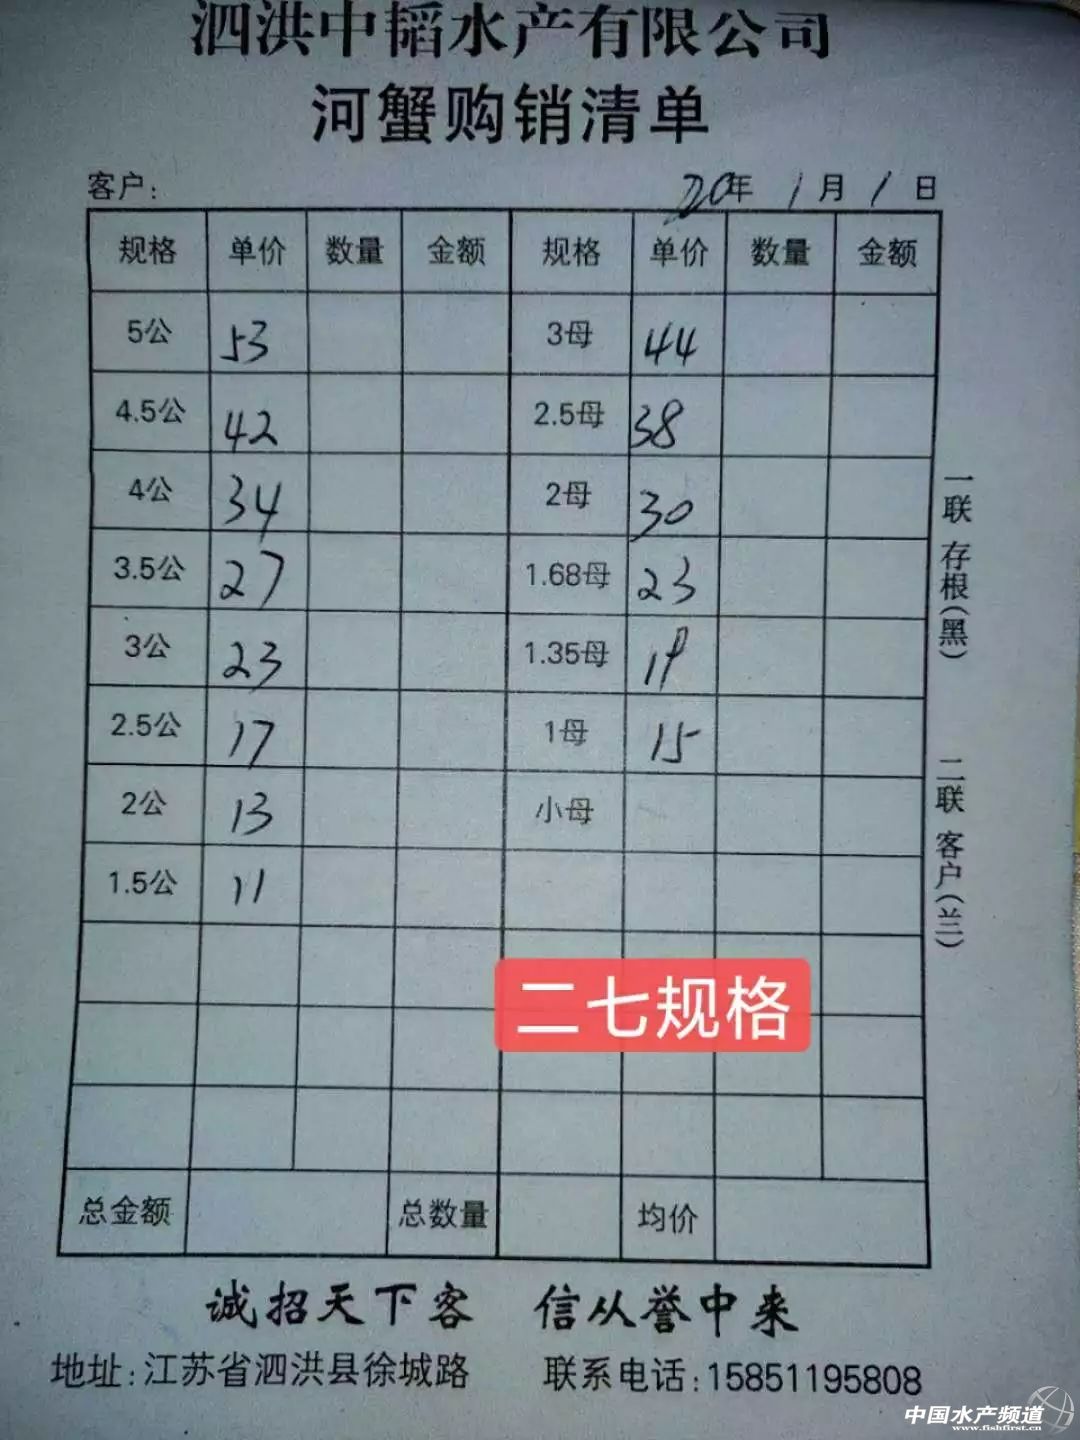 泗洪中韬水产有限公司
河蟹购销清单
客户: 20年 1月 1日
规格 单价 数量 金额 规格 单价 数量 金额
5公 53 3母 44
4.5公 42 2.5母 38
4公 34 2母 30
3.5公 27 1.68母 23
3公 23 1.35母 19
2.5公 17 1母 15
2公 13 小母
1.5公 11
二七规格
总金额 总数量 均价
一联 存根(黑)
二联 客户(兰)
诚招天下客 信从誉中来
地址:江苏省泗洪县徐城路 联系电话:15851195808
中国水产频道
www.fishfirst.cn